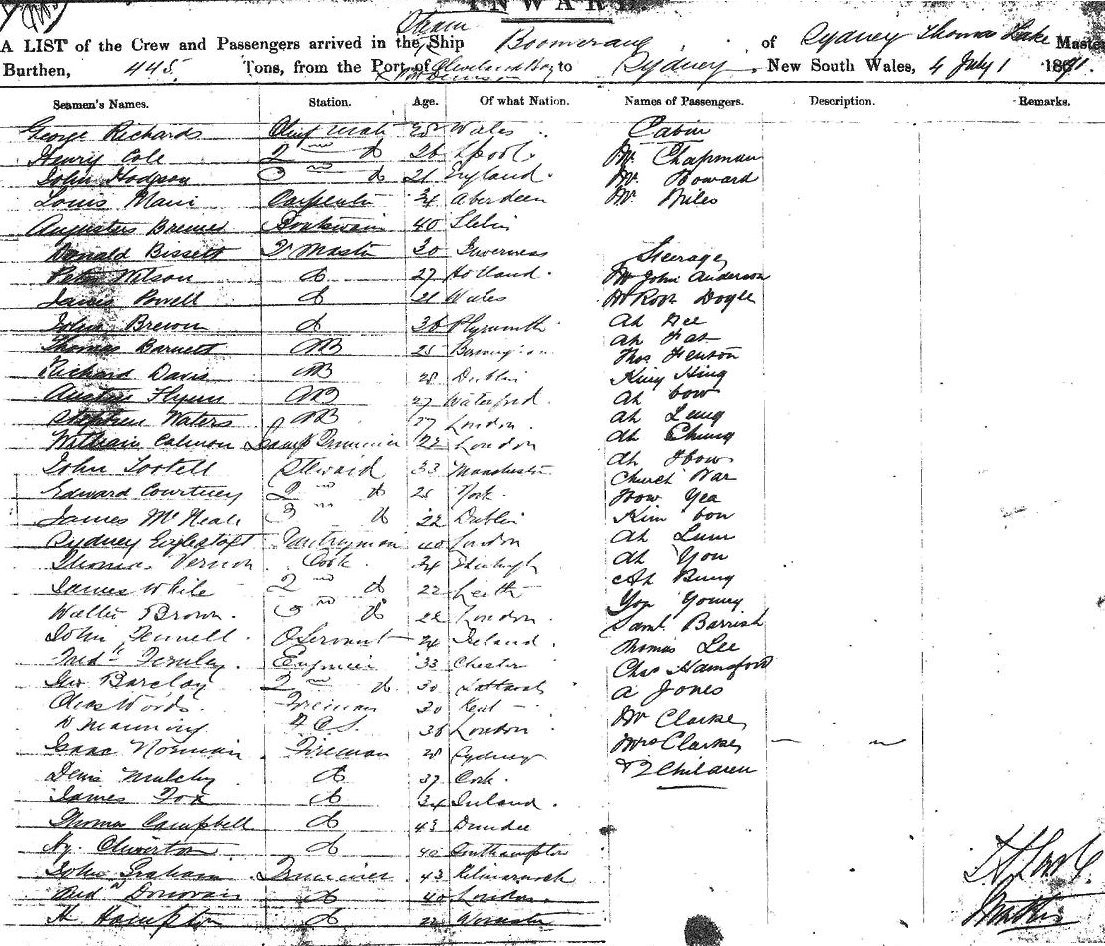 INWARD
A LIST of the Crew and Passengers arrived in the Steam Ship Boomerang of Sydney Thomas Lake Master
Burthen, 445 Tons, from the Port of Cleveland Bay to Sydney, New South Wales, 4 July 1
Seamen's Names. Station. Age. Of what Nation. Names of Passengers. Description. Remarks.
George Richards Chief Mate Wales Cabin
Henry Cole 2nd do 26 L'pool Mr. Chapman
John Hodgson 3rd do 21 England Mr. Howard
Louis Carpenter 34 Aberdeen Mr. Niles
Augustus Boatswain 40
Donald Bissett Qr Master 30 Inverness Steerage
Peter Wilson do 27 Holland Mr John Anderson
James do 21 Wales Doyle
John do 36 Plymouth Ah Gee
Thomas Barnett AB 25 Ah
Richard Davis AB 28 Dublin Thos Fenton
Austin Flynn AB 27 Waterford King Hing
Stephen Waters AB 27 London Ah Bow
William Lamp Trimmer 22 London Ah Leng
John Tootell Steward 33 Manchester Ah Chung
Edward Courtney 2nd do 25 York Ah How
James McNeale 3rd do 22 Dublin Church War
Sydney Pantryman 40 London How Yea
Thomas Vernon Cook 34 Edinburgh Kim Bon
James White 2nd do 22 Leith Ah Lum
Walter Brown 3rd do 22 London Ah You
John Fennell Servant 24 Ireland Ah Bung
Fernley Engineer 33 Chester Yop Young
Geo Barclay 2nd do 30 Saml Barrish
Chas Woods Fireman 30 Kent Thomas Lee
D Manning 36 London Chas Hansford
Isaac Norman Fireman 28 Sydney A Jones
Denis Mulchy do 37 Cork Mr Clarke
James Fox do 34 Ireland Mrs Clarke
Thomas Campbell do 43 Dundee & 2 Children
Hy. do 40 Southampton
John Graham Trimmer 43 Kilmarnock
Donovan do 40 London
H Hampton do 22 Worcester
Master